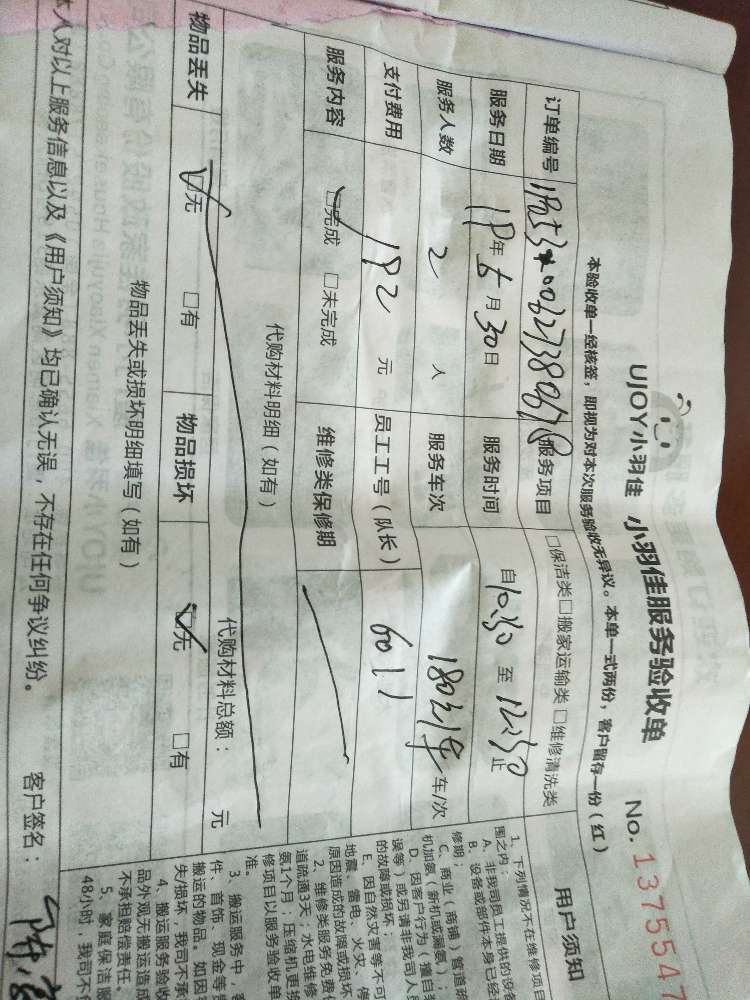 UJOY小羽佳 小羽佳服务验收单
No. 1375547
本验收单一经核签，即视为对本次服务验收无异议。本单一式两份，客户留存一份（红）
订单编号 服务项目 □保洁类□搬家运输类□维修清洗类
服务日期 19年6月30日 服务时间 自10:30至12:30止
服务人数 2人 服务车次 车/次
支付费用 192元 员工工号（队长） 6011
服务内容 □完成 □未完成 维修类保修期
代购材料明细（如有）
代购材料总额： 元
物品丢失 □无 □有 物品损坏 □无 □有
物品丢失或损坏明细填写（如有）
本人对以上服务信息以及《用户须知》均已确认无误，不存在任何争议纠纷。 客户签名：
用户须知
1、下列情况不在维修项目
围之内：
A、非我司员工提供的设备
B、设备或部件本身已经
修期；
C、商业（商铺）管道疏
机加氨（新机或漏氨）；
D、因客户行为（擅自
误等）或另请非我司人员
的故障或损坏；
E、因自然灾害等不可
地震、雷电、火灾、停
原因造成的故障或损坏
2、维修类服务免费
道疏通3天；水电维修
氨1个月；压缩机更换
修项目以服务验收单
准。
3、搬运服务中，
件、首饰、现金等
搬运的物品。如因
失/损坏，我司不承
4、搬运服务验收
品外观无搬运造成
不承担赔偿责任。
5、家庭保洁服
48小时，我司不